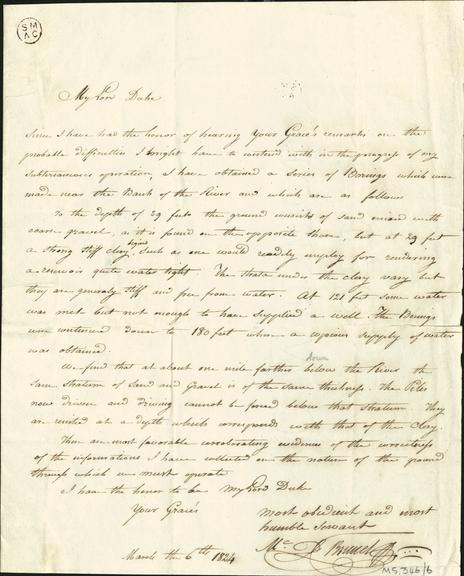 SM
AC
My Lord Duke
Since I have had the honor of hearing Your Grace's remarks on the
probable difficulties I might have to contend with in the progress of my
subterraneous operation, I have obtained a series of Borings which were
made near the Bank of the River and which are as follows
To the depth of 29 feet the ground consists of sand mixed with
coarse gravel, as it is found on the opposite shore, but at 29 feet
a strong stiff clay begins, such as one would readily employ for rendering
a reservoir quite water tight. The strata under the clay vary but
they are generally stiff and free from water. At 121 feet some water
was met but not enough to have supplied a well. The Borings
were continued down to 180 feet when a copious supply of water
was obtained.
We find that at about one mile farther down below the River the
same stratum of Sand and Gravel is of the same thickness. The Piles
now driven and driving cannot be forced below that stratum they
are resisted at a depth which corresponds with that of the Clay.
These are most favorable corroborating evidences of the correctness
of the informations I have collected on the nature of the ground
through which we must operate
I have the honor to be My Lord Duke
Your Grace's
most obedient and most
humble Servant
Mc I Brunel
March the 6th 1824
MS.346/6